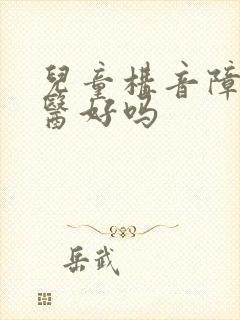 兒童構音障
醫好吗
岳武